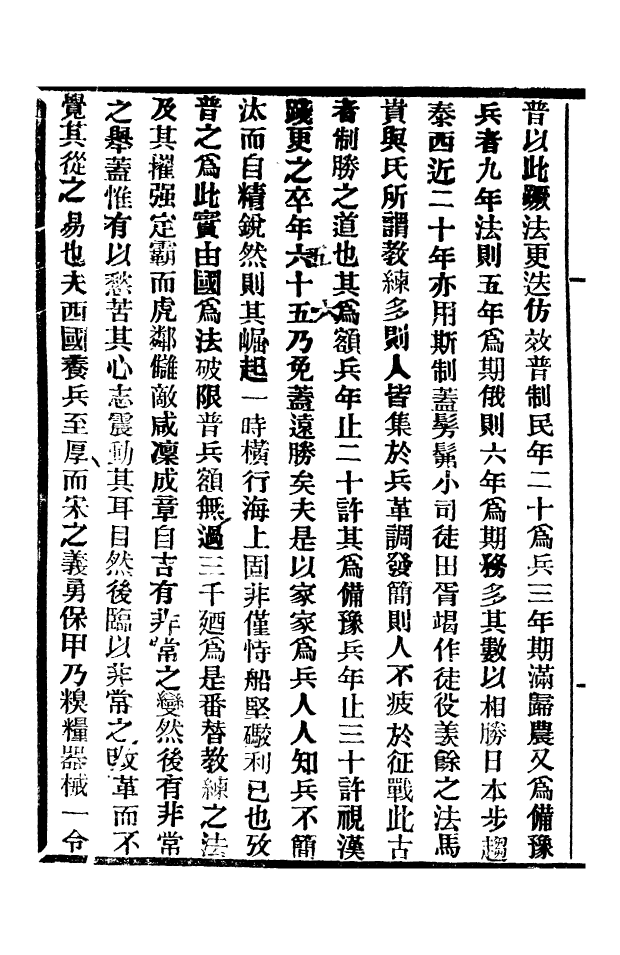 普以此蹶法更迭仿效普制民年二十爲兵三年期滿歸農又爲備豫
兵者九年法則五年爲期俄則六年爲期務多其數以相勝日本步趨
泰西近二十年亦用斯制蓋髣髴小司徒田胥竭作徒役羨餘之法馬
貴與氏所謂教練多則人皆集於兵革調發簡則人不疲於征戰此古
者制勝之道也其爲額兵年止二十許其爲備豫兵年止三十許視漢
踐更之卒年六十五乃免蓋遠勝矣夫是以家家爲兵人人知兵不簡
汰而自精銳然則其崛起一時橫行海上固非僅恃船堅礮利已也攷
普之爲此實由國爲法破限普兵額無過三千廼爲是番替教練之法
及其擢强定霸而虎鄰讎敵咸凜成章自古有非常之變然後有非常
之舉蓋惟有以愁苦其心志震動其耳目然後臨以非常之改革而不
覺其從之易也夫西國養兵至厚而宋之義勇保甲乃糗糧器械一令